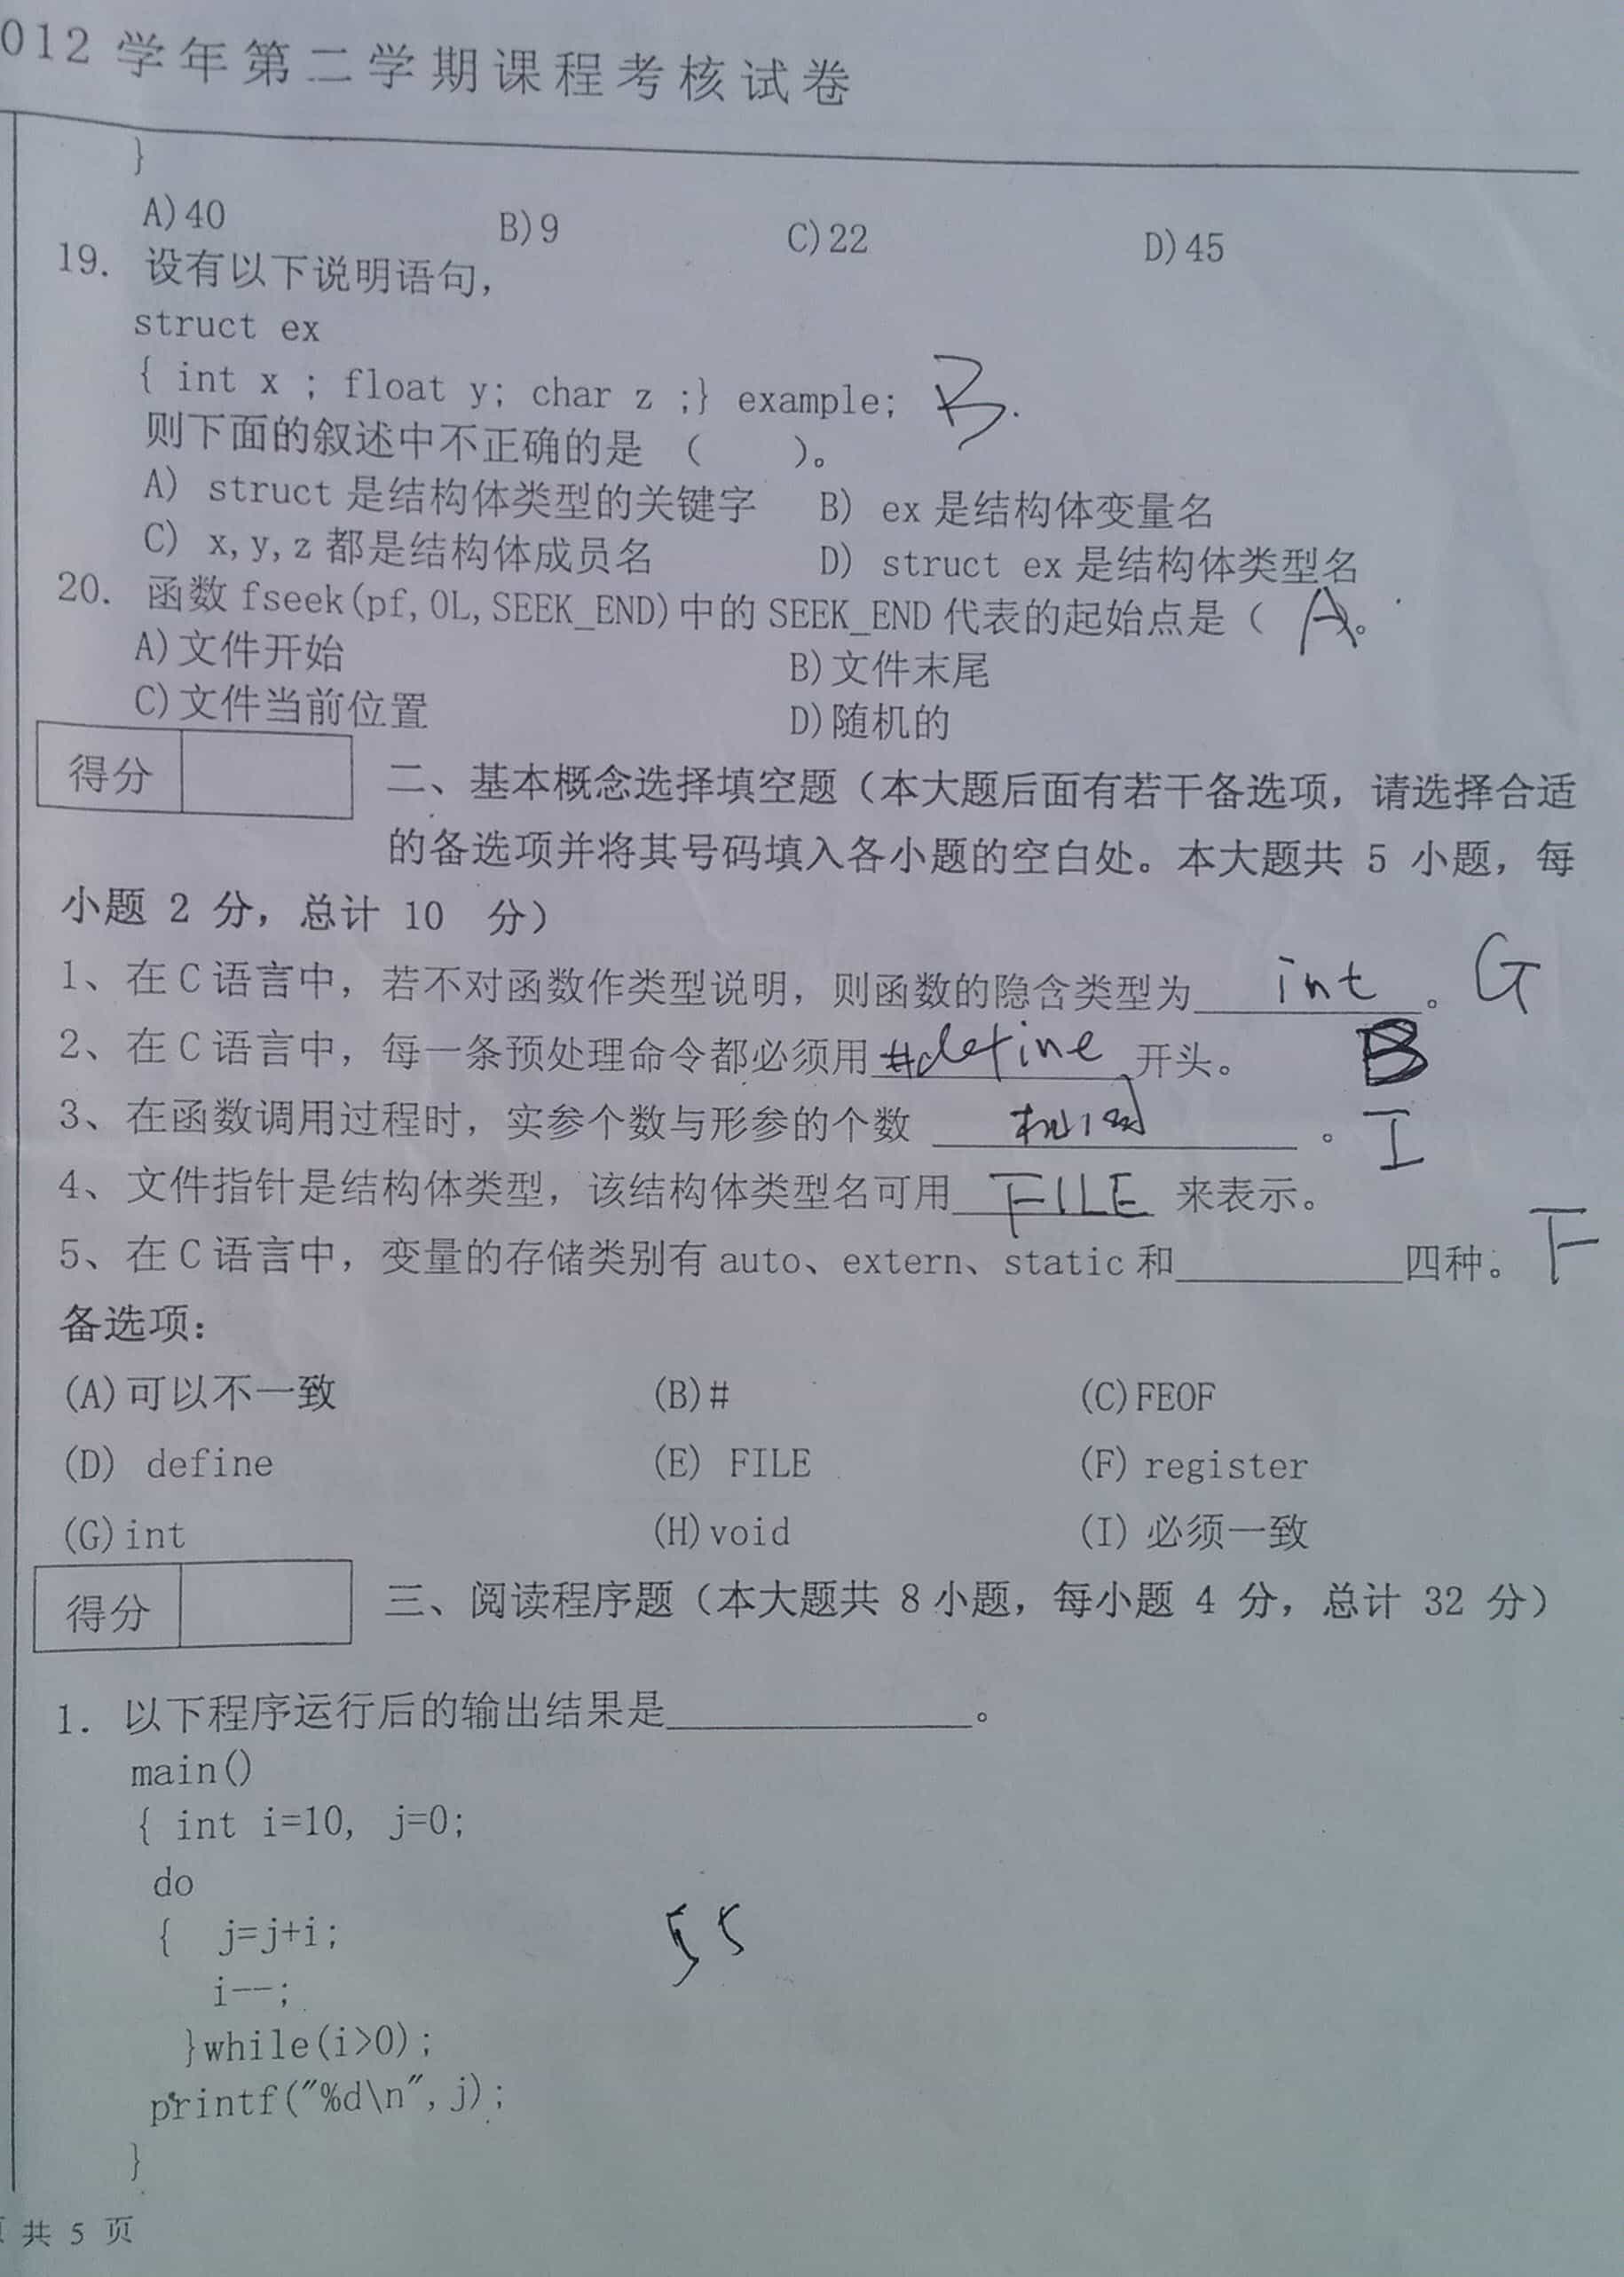 012 学年第二学期课程考核试卷
}
A)40 B)9 C)22 D)45
19. 设有以下说明语句,
struct ex
{ int x ; float y; char z ;} example; B.
则下面的叙述中不正确的是 ( )。
A) struct 是结构体类型的关键字 B) ex 是结构体变量名
C) x,y,z 都是结构体成员名 D) struct ex 是结构体类型名
20. 函数 fseek(pf,0L,SEEK_END)中的 SEEK_END 代表的起始点是 ( A )。
A)文件开始 B)文件末尾
C)文件当前位置 D)随机的
得分
二、基本概念选择填空题（本大题后面有若干备选项，请选择合适
的备选项并将其号码填入各小题的空白处。本大题共 5 小题，每
小题 2 分，总计 10 分）
1、在 C 语言中，若不对函数作类型说明，则函数的隐含类型为 int 。 G
2、在 C 语言中，每一条预处理命令都必须用 #define 开头。 B
3、在函数调用过程时，实参个数与形参的个数 相同 。 I
4、文件指针是结构体类型，该结构体类型名可用 FILE 来表示。
5、在 C 语言中，变量的存储类别有 auto、extern、static 和________四种。 F
备选项：
(A)可以不一致 (B)# (C)FEOF
(D) define (E) FILE (F) register
(G)int (H)void (I) 必须一致
得分
三、阅读程序题（本大题共 8 小题，每小题 4 分，总计 32 分）
1. 以下程序运行后的输出结果是____________。
main()
{ int i=10, j=0;
do
{ j=j+i; 55
i--;
}while(i>0);
printf("%d\n",j);
}
共 5 页